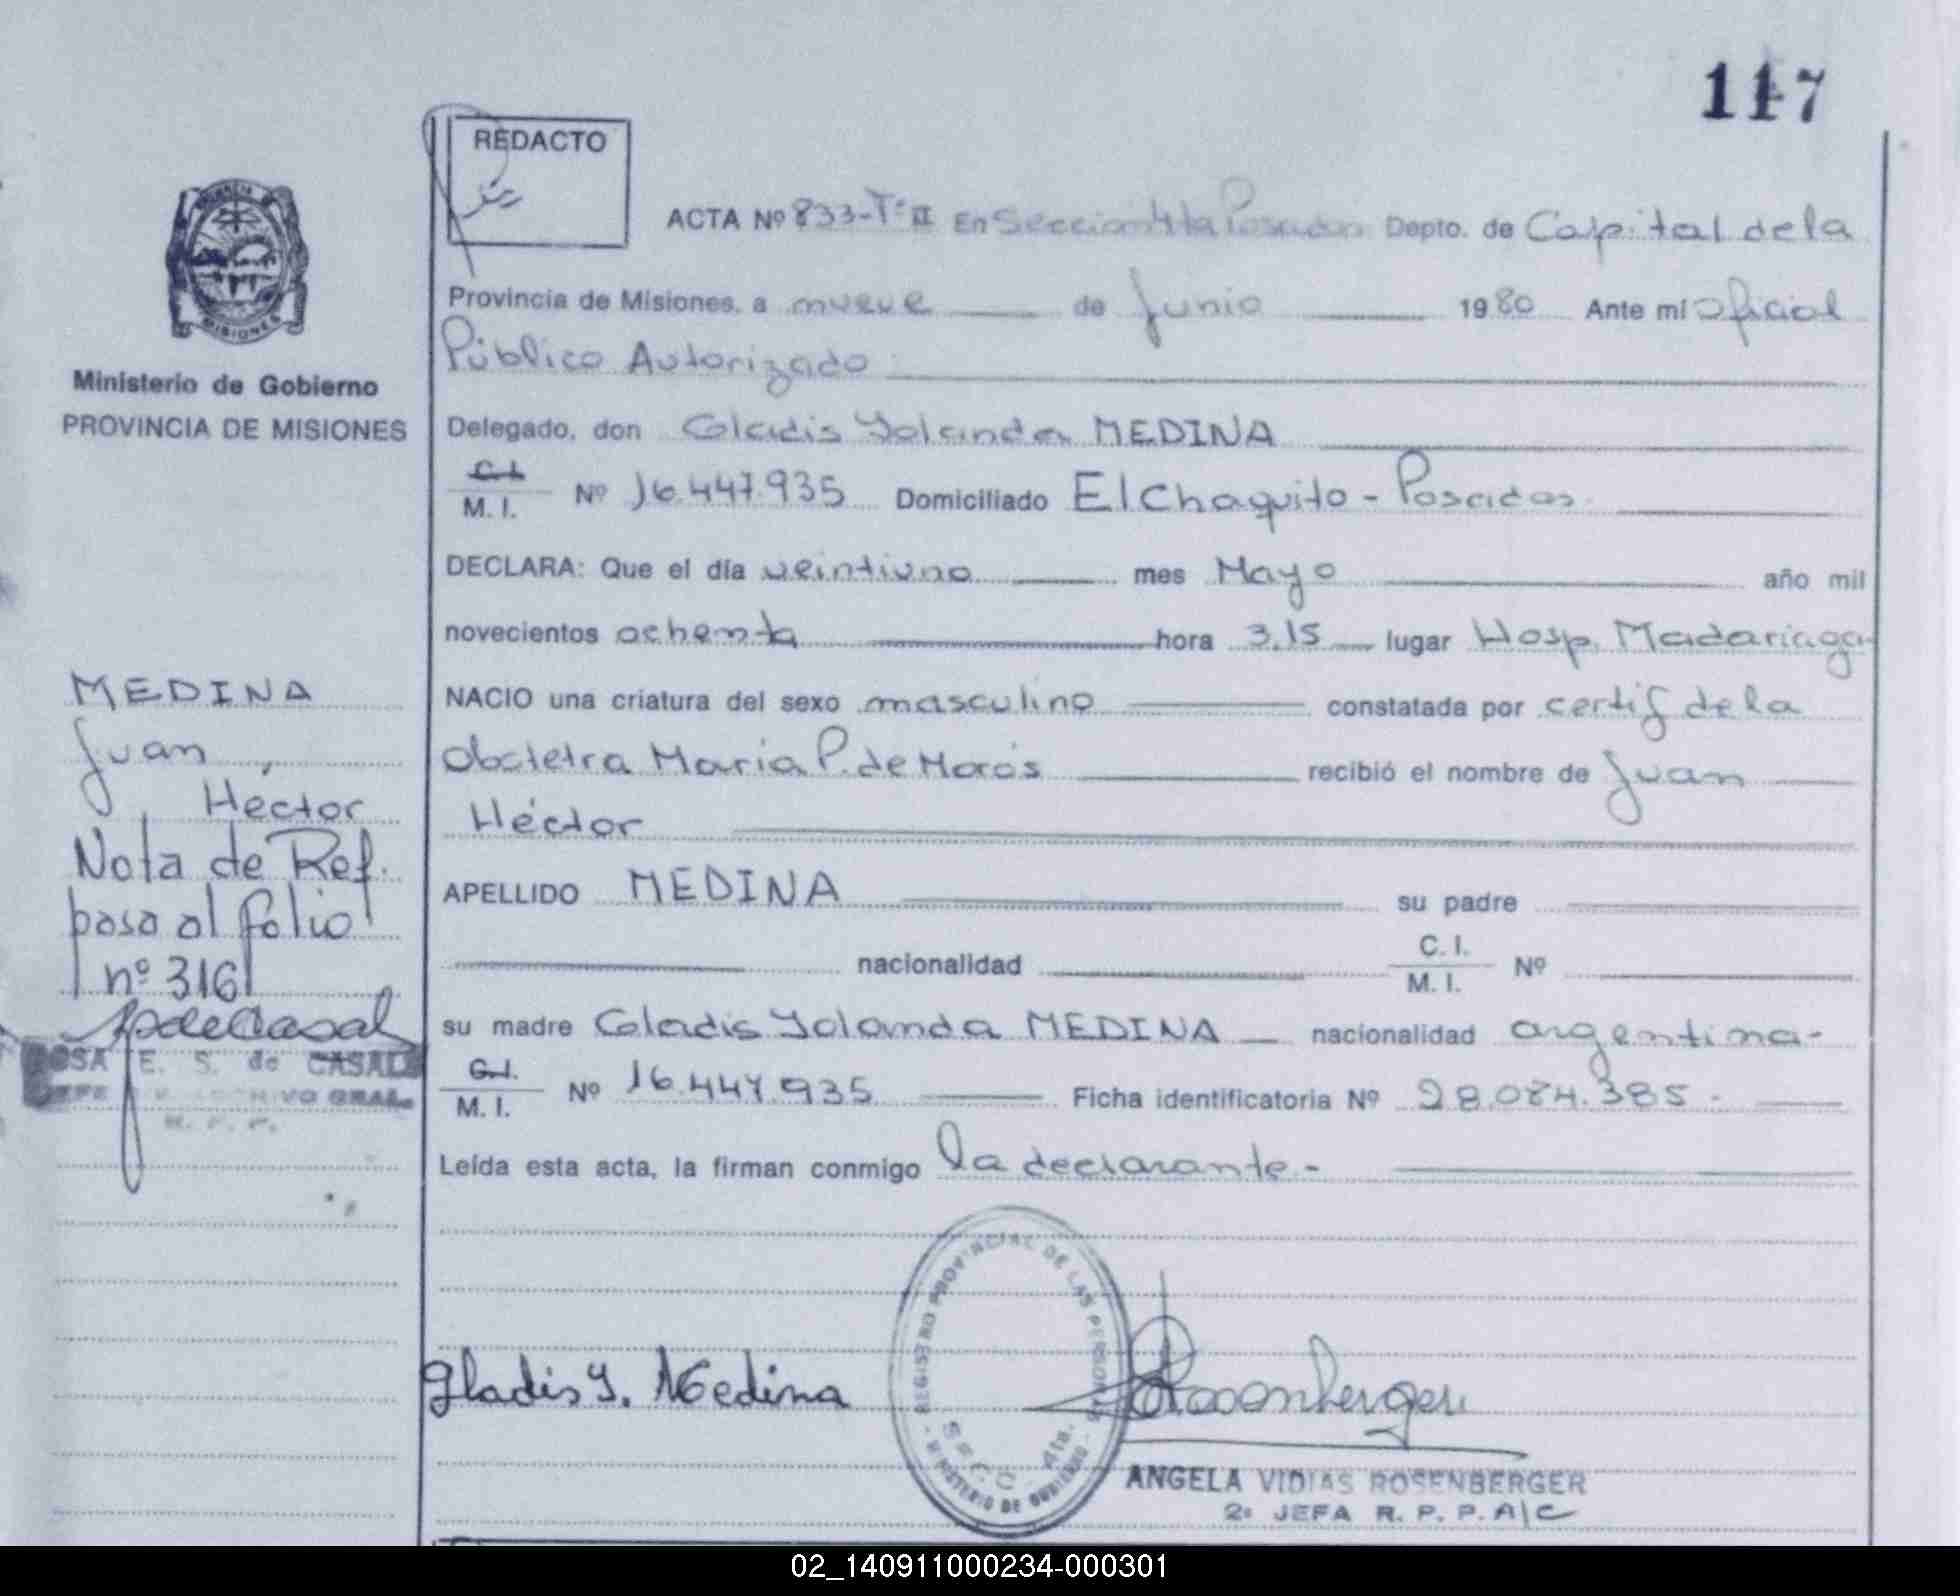 117
REDACTO
ACTA Nº 833-Tº II En Sección 4ta Posadas Depto. de Capital de la
Provincia de Misiones, a nueve de Junio 1980 Ante mí Oficial
Público Autorizado
Delegado, don Gladis Yolanda MEDINA
C.I. M. I. Nº 16.447.935 Domiciliado El Chaquito - Posadas
DECLARA: Que el día veintiuno mes Mayo año mil
novecientos ochenta hora 3,15 lugar Hosp. Madariaga
NACIO una criatura del sexo masculino constatada por certif de la
Obstetra María P. de Morós recibió el nombre de Juan
Héctor
APELLIDO MEDINA su padre
nacionalidad C. I. M. I. Nº
su madre Gladis Yolanda MEDINA nacionalidad argentina-
C.I. M. I. Nº 16.447.935 Ficha identificatoria Nº 28.084.385.
Leída esta acta, la firman conmigo la declarante.-
Gladis Y. Medina
Rosenberger
ANGELA VIDIAS ROSENBERGER
2º JEFA R. P. P. A/C
REGISTRO PROVINCIAL DE LAS PERSONAS
SECC. 4ta.
MINISTERIO DE GOBIERNO
PROVINCIA
MISIONES
Ministerio de Gobierno
PROVINCIA DE MISIONES
MEDINA
Juan
Héctor
Nota de Ref.
paso al folio
nº 316
E. S. de CASAL
ARCHIVO GRAL.
R. P. P.
02_140911000234-000301